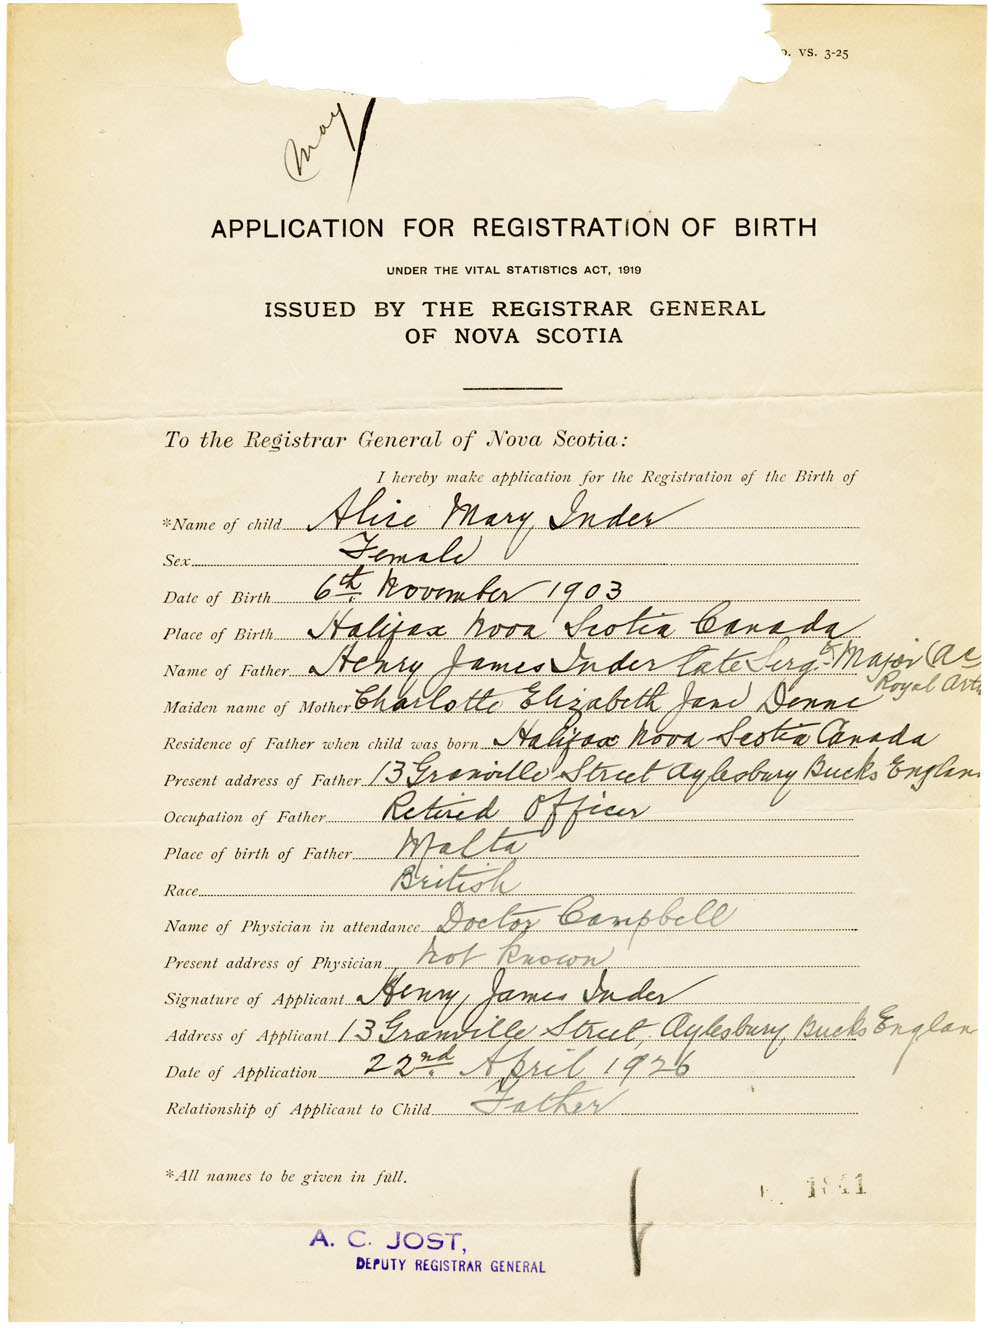 VS. 3-25
May
APPLICATION FOR REGISTRATION OF BIRTH
UNDER THE VITAL STATISTICS ACT, 1919
ISSUED BY THE REGISTRAR GENERAL
OF NOVA SCOTIA
To the Registrar General of Nova Scotia:
I hereby make application for the Registration of the Birth of
*Name of child Alice Mary Inder
Sex Female
Date of Birth 6th November 1903
Place of Birth Halifax Nova Scotia Canada
Name of Father Henry James Inder late Sergt Major (AC
Royal Arti
Maiden name of Mother Charlotte Elizabeth Jane Denne
Residence of Father when child was born Halifax Nova Scotia Canada
Present address of Father 13 Granville Street Aylesbury Bucks Englan
Occupation of Father Retired Officer
Place of birth of Father Malta
Race British
Name of Physician in attendance Doctor Campbell
Present address of Physician Not Known
Signature of Applicant Henry James Inder
Address of Applicant 13 Granville Street, Aylesbury, Bucks Englan
Date of Application 22nd April 1926
Relationship of Applicant to Child Father
*All names to be given in full.
1841
A. C. JOST,
DEPUTY REGISTRAR GENERAL